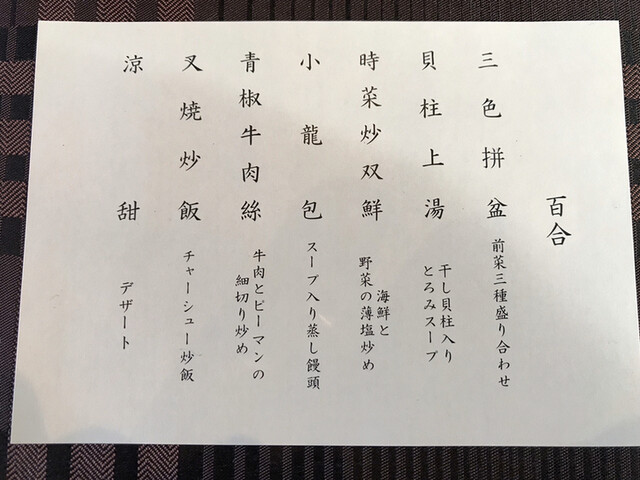 百合
三色拼盆
前菜三種盛り合わせ
貝柱上湯
干し貝柱入り
とろみスープ
時菜炒双鮮
海鮮と
野菜の薄塩炒め
小龍包
スープ入り蒸し饅頭
青椒牛肉絲
牛肉とピーマンの
細切り炒め
叉焼炒飯
チャーシュー炒飯
涼甜
デザート